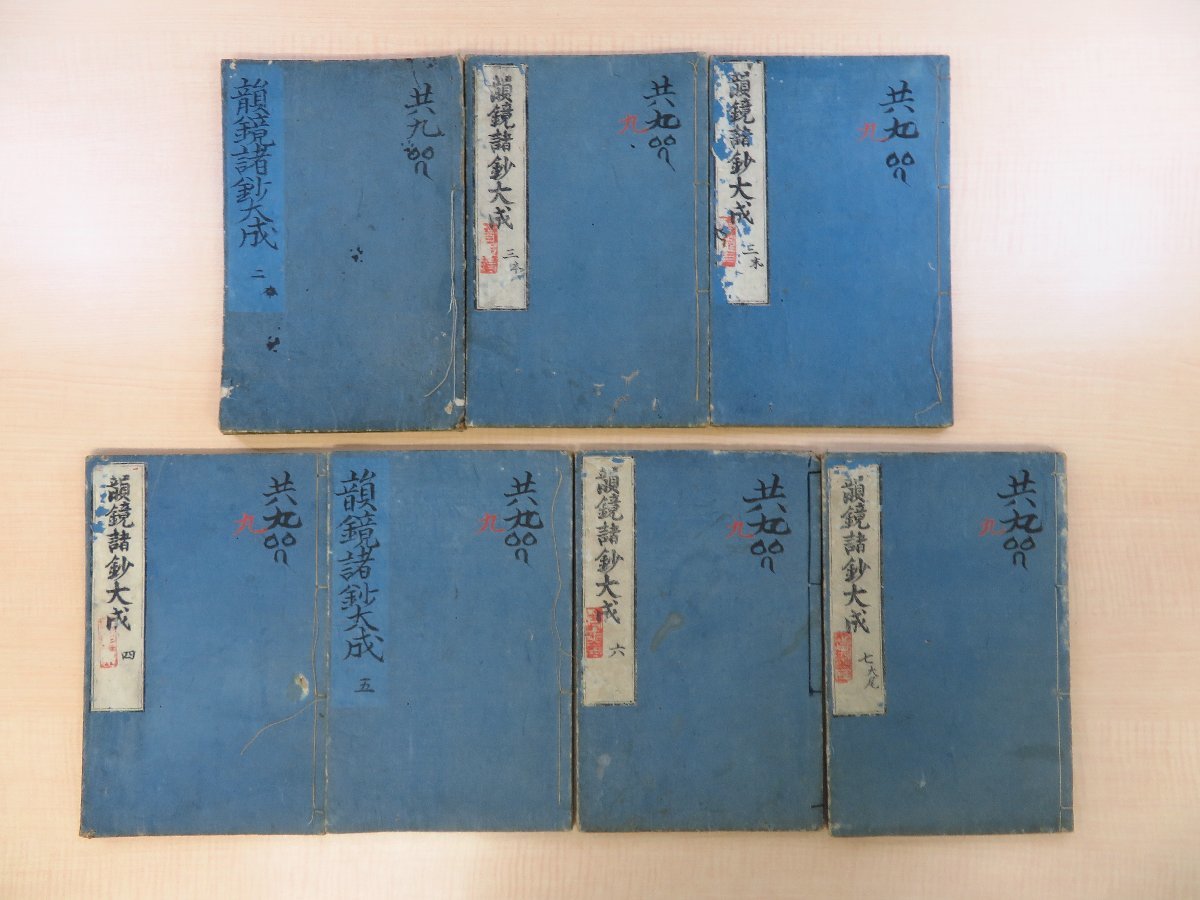 韻鏡諸鈔大成
二
共九
韻鏡諸鈔大成
三末
共九
九
韻鏡諸鈔大成
三本
共九
九
韻鏡諸鈔大成
四
共九
九
韻鏡諸鈔大成
五
共九
九
韻鏡諸鈔大成
六
共九
九
韻鏡諸鈔大成
七大尾
共九
九